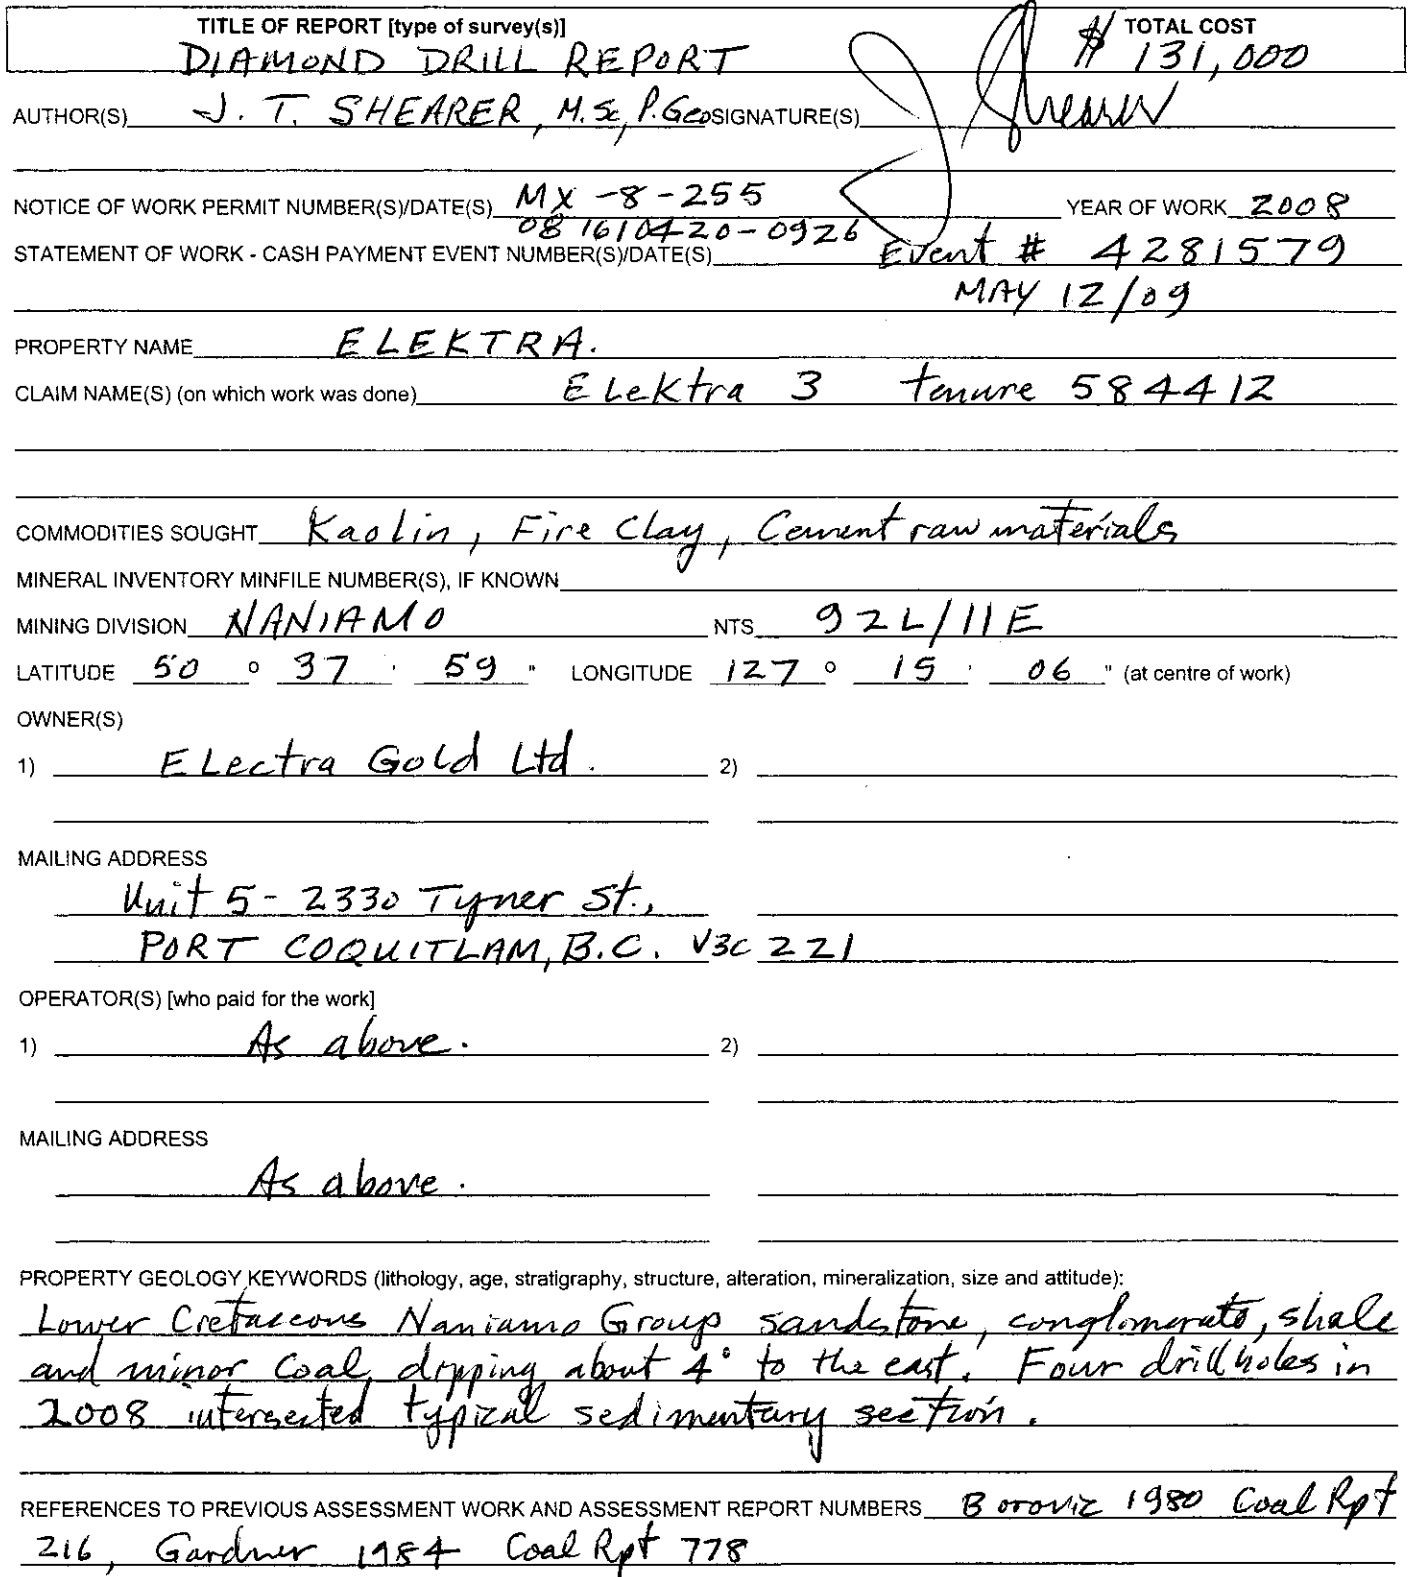 TITLE OF REPORT [type of survey(s)] TOTAL COST
DIAMOND DRILL REPORT $ 131,000
AUTHOR(S) J. T. SHEARER, M.Sc, P.Geo SIGNATURE(S) J Shearer
NOTICE OF WORK PERMIT NUMBER(S)/DATE(S) MX-8-255 YEAR OF WORK 2008
081610420-0926
STATEMENT OF WORK - CASH PAYMENT EVENT NUMBER(S)/DATE(S) Event # 4281579
MAY 12/09
PROPERTY NAME ELEKTRA.
CLAIM NAME(S) (on which work was done) ELeKtra 3 tenure 584412
COMMODITIES SOUGHT Kaolin, Fire Clay, Cement raw materials
MINERAL INVENTORY MINFILE NUMBER(S), IF KNOWN
MINING DIVISION NANIAMO NTS 92L/11E
LATITUDE 50 ° 37 ' 59 " LONGITUDE 127 ° 15 ' 06 " (at centre of work)
OWNER(S)
1) ELectra Gold Ltd. 2)
MAILING ADDRESS
Unit 5 - 2330 Tyner St.,
PORT COQUITLAM, B.C. V3C 2Z1
OPERATOR(S) [who paid for the work]
1) As above. 2)
MAILING ADDRESS
As above.
PROPERTY GEOLOGY KEYWORDS (lithology, age, stratigraphy, structure, alteration, mineralization, size and attitude):
Lower Cretaceous Naniamo Group sandstone, conglomerate, shale
and minor Coal, dipping about 4° to the east. Four drill holes in
2008 intersected typical sedimentary section.
REFERENCES TO PREVIOUS ASSESSMENT WORK AND ASSESSMENT REPORT NUMBERS Borovic 1980 Coal Rpt
216, Gardner 1984 Coal Rpt 778